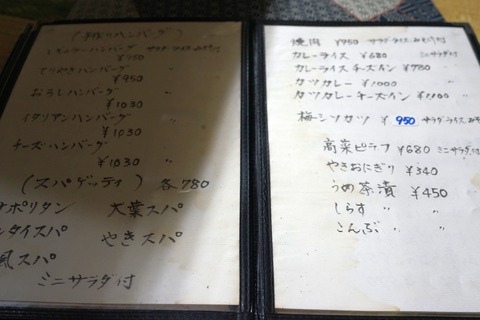 (手作りハンバーグ)
レギュラーハンバーグ サラダ ライス みそ汁付
¥950
てりやきハンバーグ 〃
¥950
おろしハンバーグ 〃
¥1030
イタリアンハンバーグ 〃
¥1030
チーズハンバーグ
¥1030 〃
(スパゲッティ) 各780
ナポリタン 大葉スパ
ンタイスパ やきスパ
風スパ
ミニサラダ付
焼肉 ¥950 サラダ ライス みそ汁付
カレーライス ¥680 ミニサラダ付
カレーライス チーズイン ¥780 〃
カツカレー ¥1,000 〃
カツカレーチーズイン ¥1,100 〃
梅シソカツ ¥950 サラダ ライス みそ
高菜ピラフ ¥680 ミニサラダ付
やきおにぎり ¥340
うめ茶漬 ¥450
しらす 〃 〃
こんぶ 〃 〃